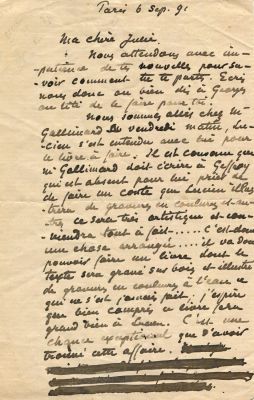 Paris 6 Sep. 91
Ma chère Julie.
Nous attendons avec im-
-patience de tes nouvelles pour sa-
voir comment tu te portes. Ecris
nous donc ou bien dis à Georges
ou Titi de le faire pour toi.
Nous sommes allés chez Mr
Gallimard Vendredi matin, Lu-
cien s'est entendu avec lui pour
le livre à faire. Il est convenu que
Mr Gallimard doit écrire à Geffroy
qui est absent pour lui prier de
de faire un conte que Lucien illus-
trera de gravures en couleurs et au-
tres, ce sera très artistique et con-
viendra tout à fait..... C'est donc
une chose arrangée.... il va donc
pouvoir faire un livre dont le
texte sera gravé sur bois et illustré
de gravures en couleurs à l'eau ce
qui ne s'est jamais fait, j'espère
que bien compris ce livre fera
grand bien à Lucien. C'est une
chance exceptionnelle que d'avoir
trouvé cette affaire.